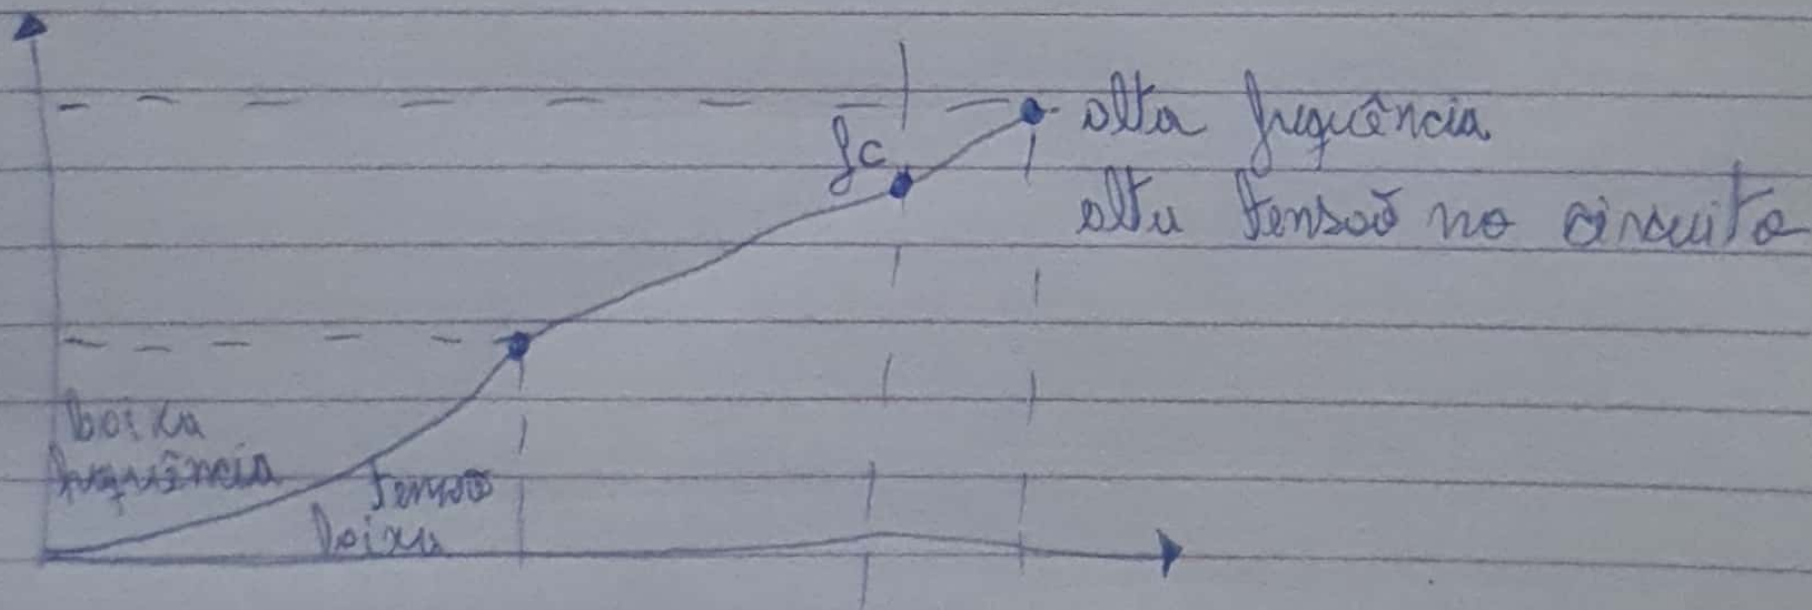 fc
alta frequência
alta tensão no circuito
baixa
frequência
tensão
baixa